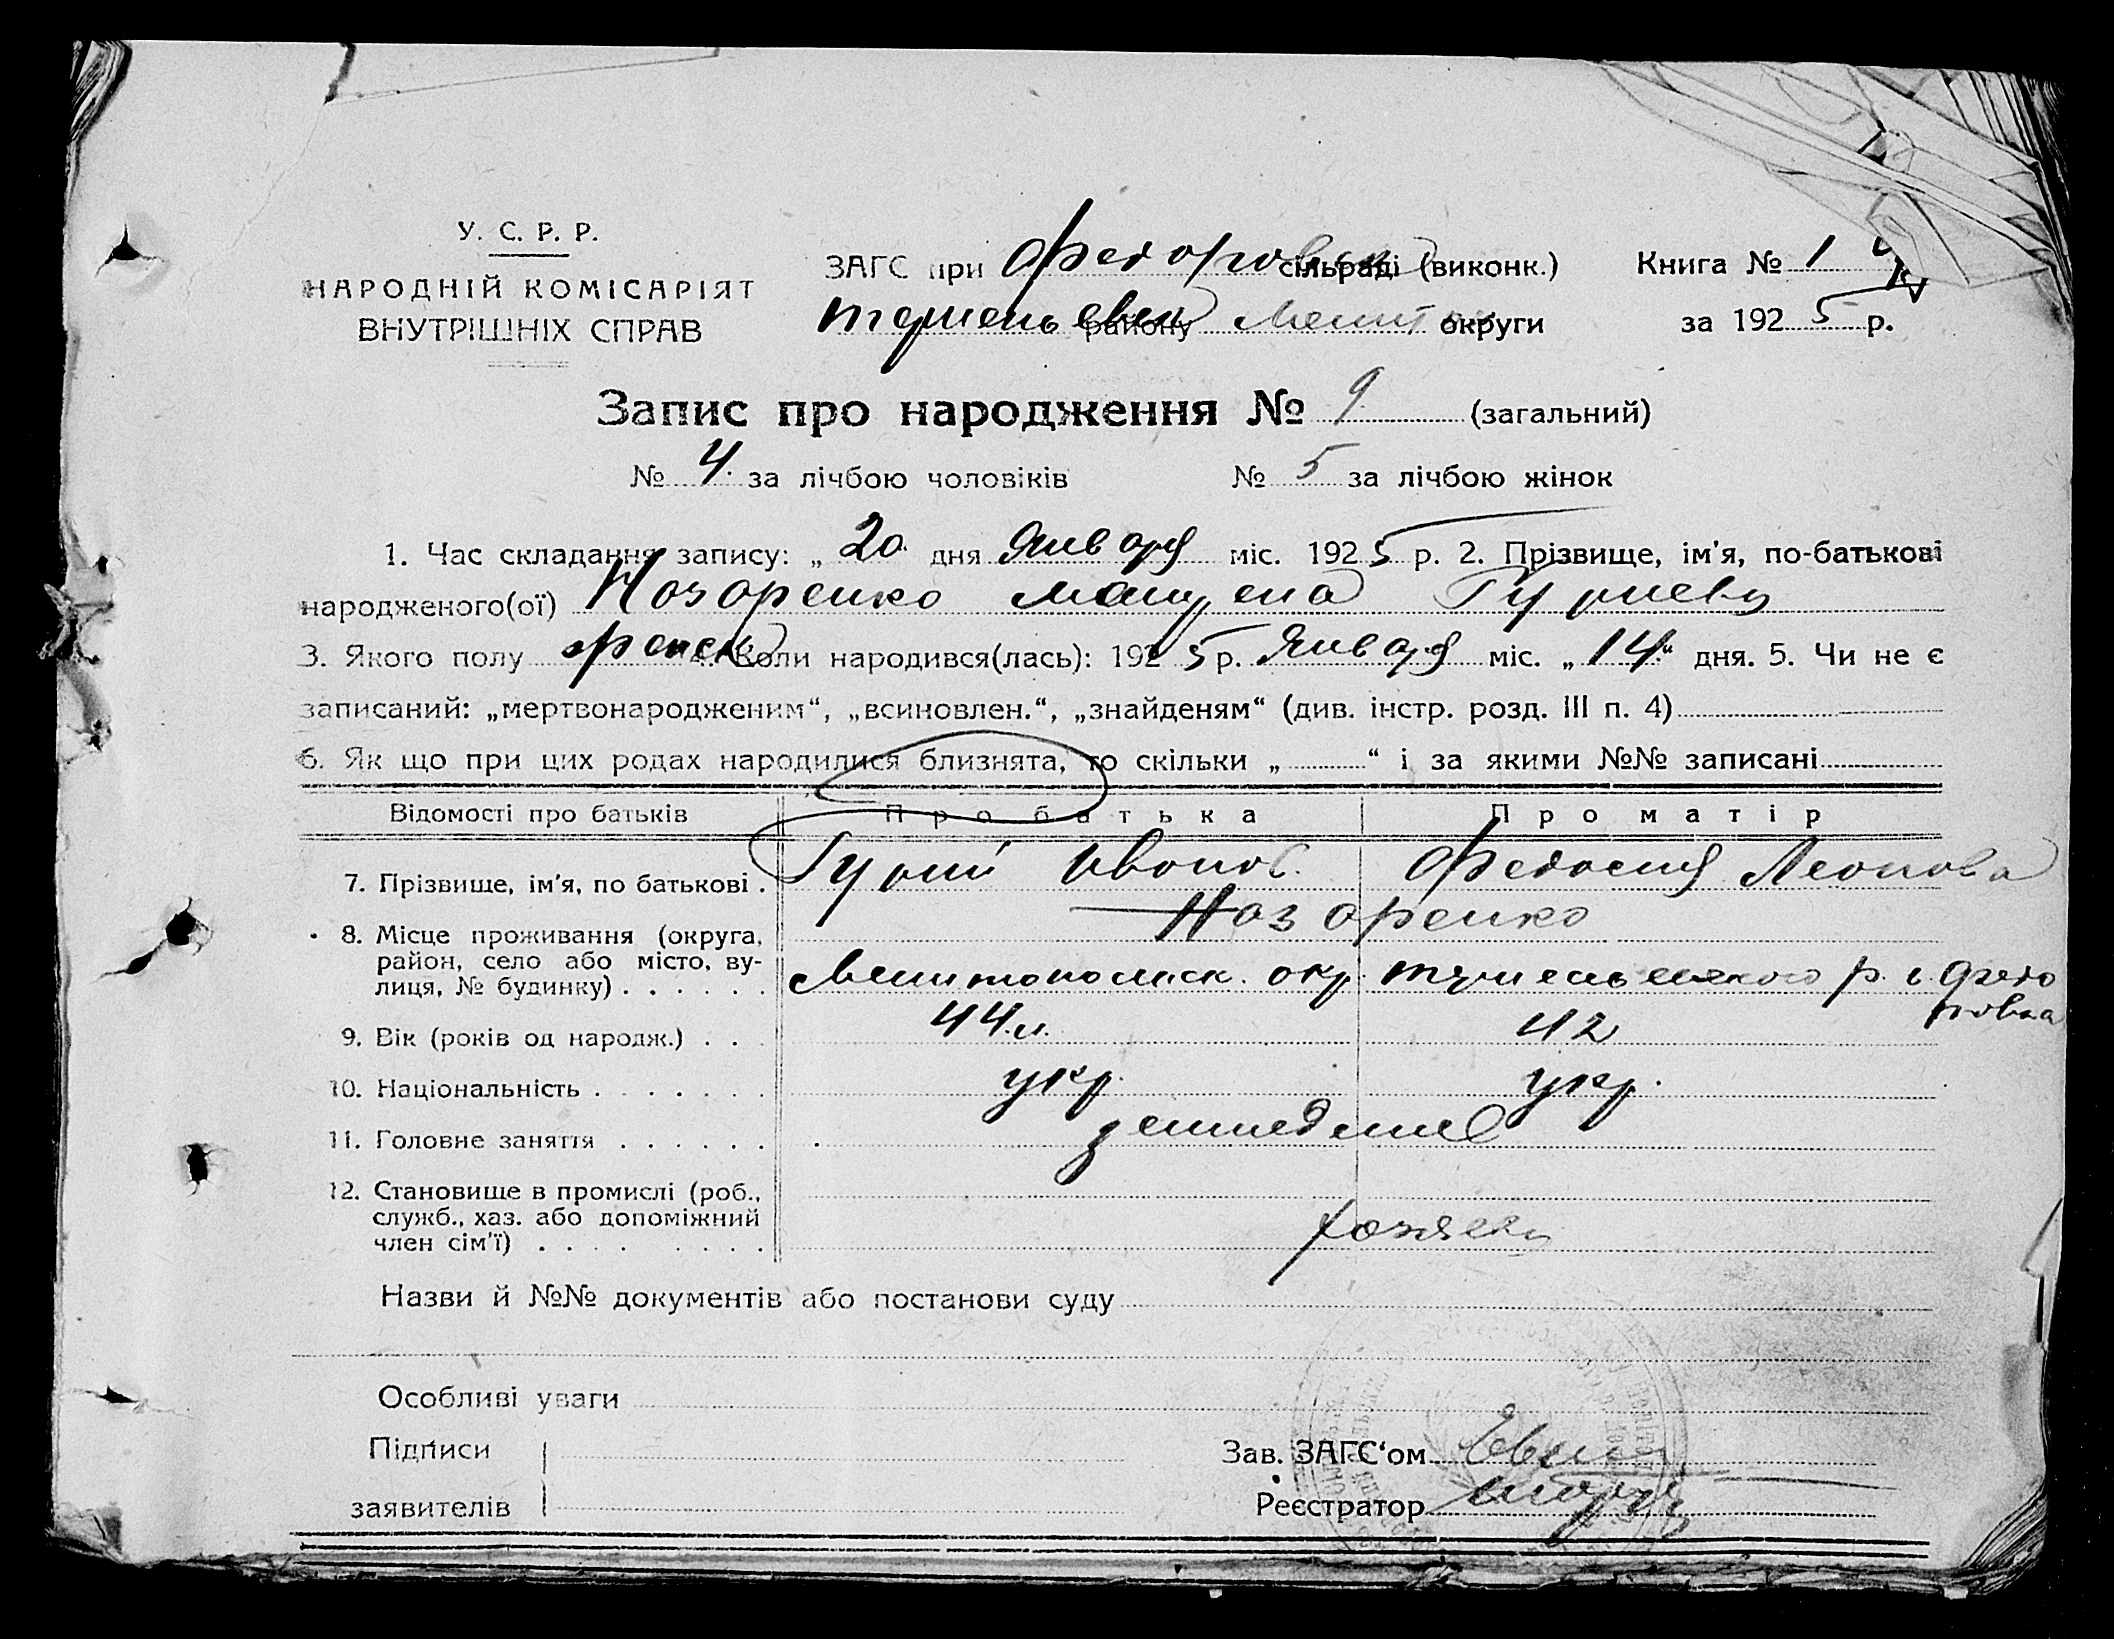 У. С. Р. Р.
НАРОДНІЙ КОМІСАРІЯТ
ВНУТРІШНІХ СПРАВ
ЗАГС при Федоровск сільраді (виконк.) Книга № 1
району Мелит округи за 1925 р.
Запис про народження № 9 (загальний)
№ 4 за лічбою чоловіків № 5 за лічбою жінок
1. Час складання запису: „20 дня Января міс. 1925 р. 2. Прізвище, ім'я, по-батькові
народженого(ої) Назаренко Гуриева
3. Якого полу женск 4. Коли народився(лась): 1925 р. Января міс. „14“ дня. 5. Чи не є
записаний: „мертвонародженим“, „всиновлен.“, „знайденям“ (див. інстр. розд. III п. 4)
6. Як що при цих родах народилися близнята, то скільки „ “ і за якими №№ записані
Відомості про батьків Про батька Про матір
7. Прізвище, ім'я, по батькові . Гурий Иванов. Федосия Леонова
Назаренко
8. Місце проживання (округа,
район, село або місто, ву-
лиця, № будинку) . . . . . . Мелитопольск. окр. р. с. Федо
ровка
9. Вік (років од народж.) . . . 44 л. 42
10. Національність . . . . . . . укр. укр.
11. Головне заняття . . . . . . земледелие
12. Становище в промислі (роб.,
служб., хаз. або допоміжний
член сім'ї) . . . . . . . . хозяева
Назви й №№ документів або постанови суду
Особливі уваги
Підписи
заявителів
Зав. ЗАГС'ом
Реєстратор